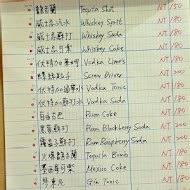 龍舌蘭 Tequila Shot NT 150
威士忌汽水 Whiskey Sprit NT 180
威士忌蘇打 Whiskey Soda NT 180
威士忌可樂 Whiskey Coke NT 180
伏特加萊姆 Vodka Limes NT 180
螺絲起子 Screw Driver NT 180
伏特加通寧 Vodka Tonic NT 180
伏特加蘇打 Vodka Soda NT 180
自由古巴 Rum Coke NT 180
Rum Blackberry Soda NT 200
Rum Raspberry Soda NT 200
龍舌蘭 Tequila Bomb NT
可樂 Mexico Coke NT
琴東尼 Gin Tonic NT